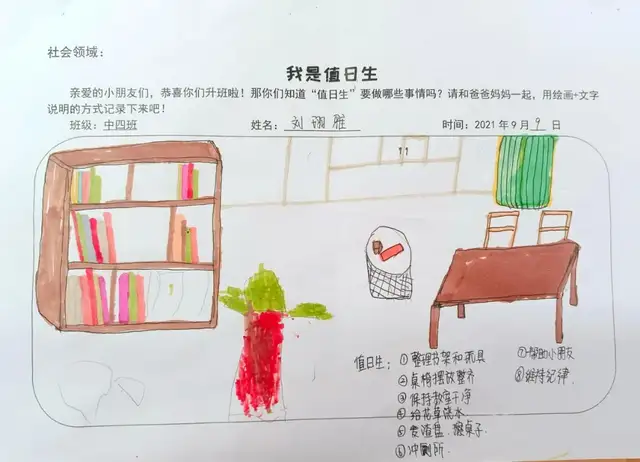 社会领域：
我是值日生
亲爱的小朋友们，恭喜你们升班啦！那你们知道“值日生”要做哪些事情吗？请和爸爸妈妈一起，用绘画+文字
说明的方式记录下来吧！
班级：中四班 姓名：刘翊雅 时间：2021年9月9日
值日生：①整理书架和玩具
②桌椅摆放整齐
③保持教室干净
④给花草浇水
⑤发渣盘、擦桌子
⑥冲厕所
⑦帮助小朋友
⑧维持纪律